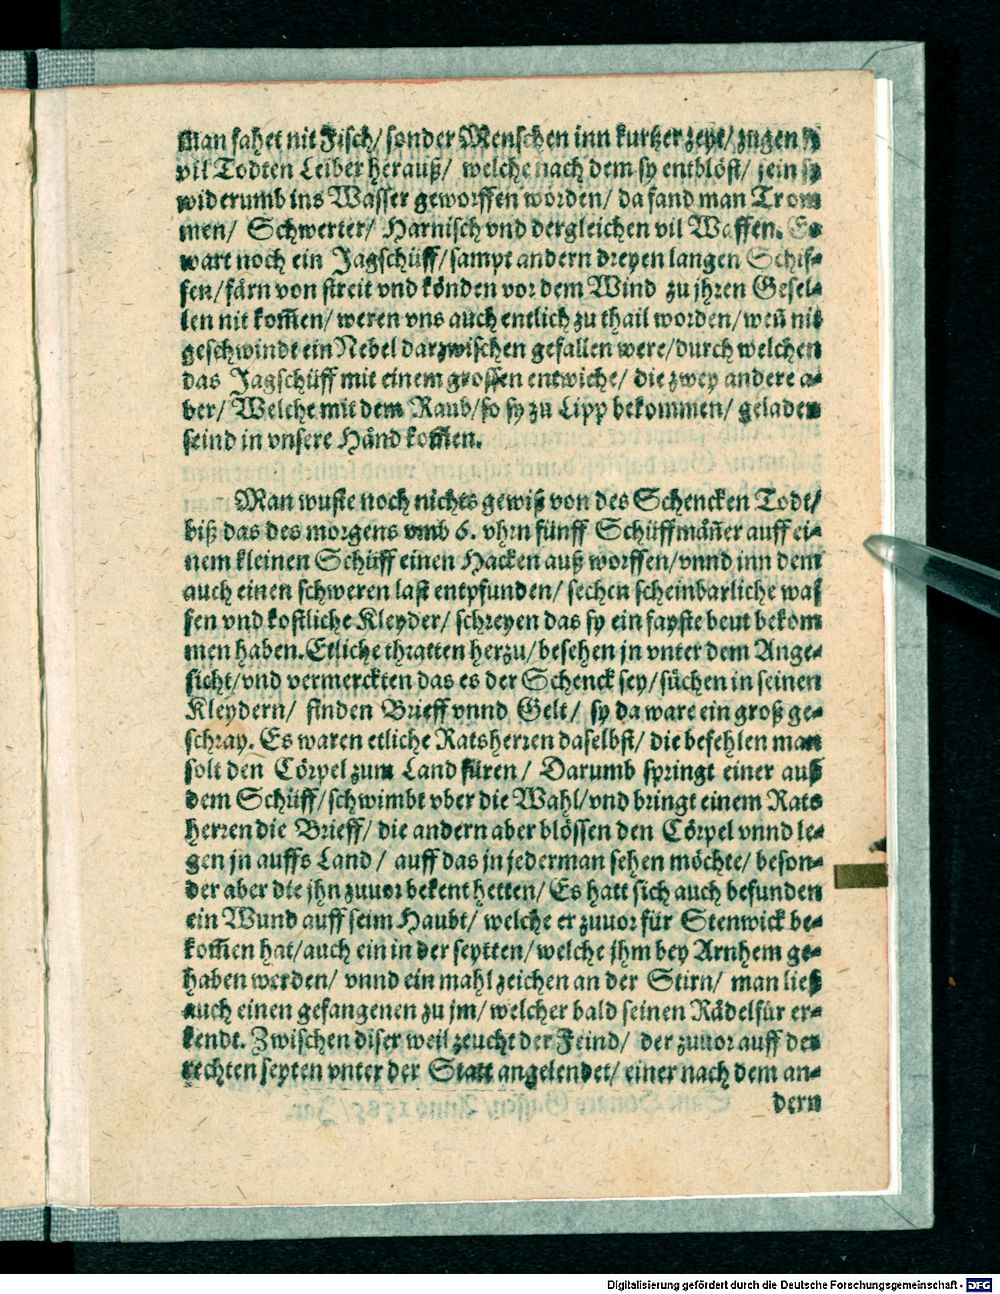 man fahet nit Fisch/ sonder Menschen inn kurtzer zeyt/ zugen sy
vil Todten Leiber herauß/ welche nach dem sy entblöst/ sein sy
widerumb ins Wasser geworffen worden/ da fand man Trom
men/ Schwerter/ Harnisch vnd dergleichen vil Waffen. Es
wart noch ein Jagschüff/ sampt andern dreyen langen Schif-
fen/ färn von streit vnd könden vor dem Wind zu jhren Gesel-
len nit kom̄en/ weren vns auch entlich zu thail worden/ wen̄ nit
geschwindt ein Nebel darzwischen gefallen were/ durch welchen
das Jagschüff mit einem grossen entwiche/ die zwey andere a-
ber/ Welche mit dem Raub/ so sy zu Lipp bekommen/ geladen
seind in vnsere Händ kom̄en.
Man wuste noch nichts gewiß von des Schencken Todt/
biß das des morgens vmb 6. vhrn fünff Schüffmän̄er auff ei-
nem kleinen Schüff einen Hacken auß worffen/ vnnd inn dem
auch einen schweren last entpfunden/ sechen scheinbarliche waf
fen vnd kostliche Kleyder/ schreyen das sy ein fayste beut bekom
men haben. Etliche thratten herzu/ besehen jn vnter dem Ange-
sicht/ vnd vermerckten das es der Schenck sey/ süchen in seinen
Kleydern/ finden Brieff vnnd Gelt/ sy da ware ein groß ge-
schray. Es waren etliche Ratsherren daselbst/ die befehlen man
solt den Cörpel zum Land füren/ Darumb springt einer auß
dem Schüff/ schwimbt vber die Wahl/ vnd bringt einem Rats
herren die Brieff/ die andern aber blössen den Cörpel vnnd le-
gen jn auffs Land/ auff das jn jederman sehen möchte/ beson-
der aber die jhn zuuor bekent hetten/ Es hatt sich auch befunden
ein Wund auff seim Haubt/ welche er zuuor für Stenwick be-
kom̄en hat/ auch ein in der seytten/ welche jhm bey Arnhem ge-
haben werden/ vnnd ein mahl zeichen an der Stirn/ man ließ
auch einen gefangenen zu jm/ welcher bald seinen Rädelfür er-
kendt. Zwischen diser weil zeucht der Feind/ der zuuor auff der
rechten seyten vnter der Statt angelendet/ einer nach dem an-
dern
Digitalisierung gefördert durch die Deutsche Forschungsgemeinschaft - DFG